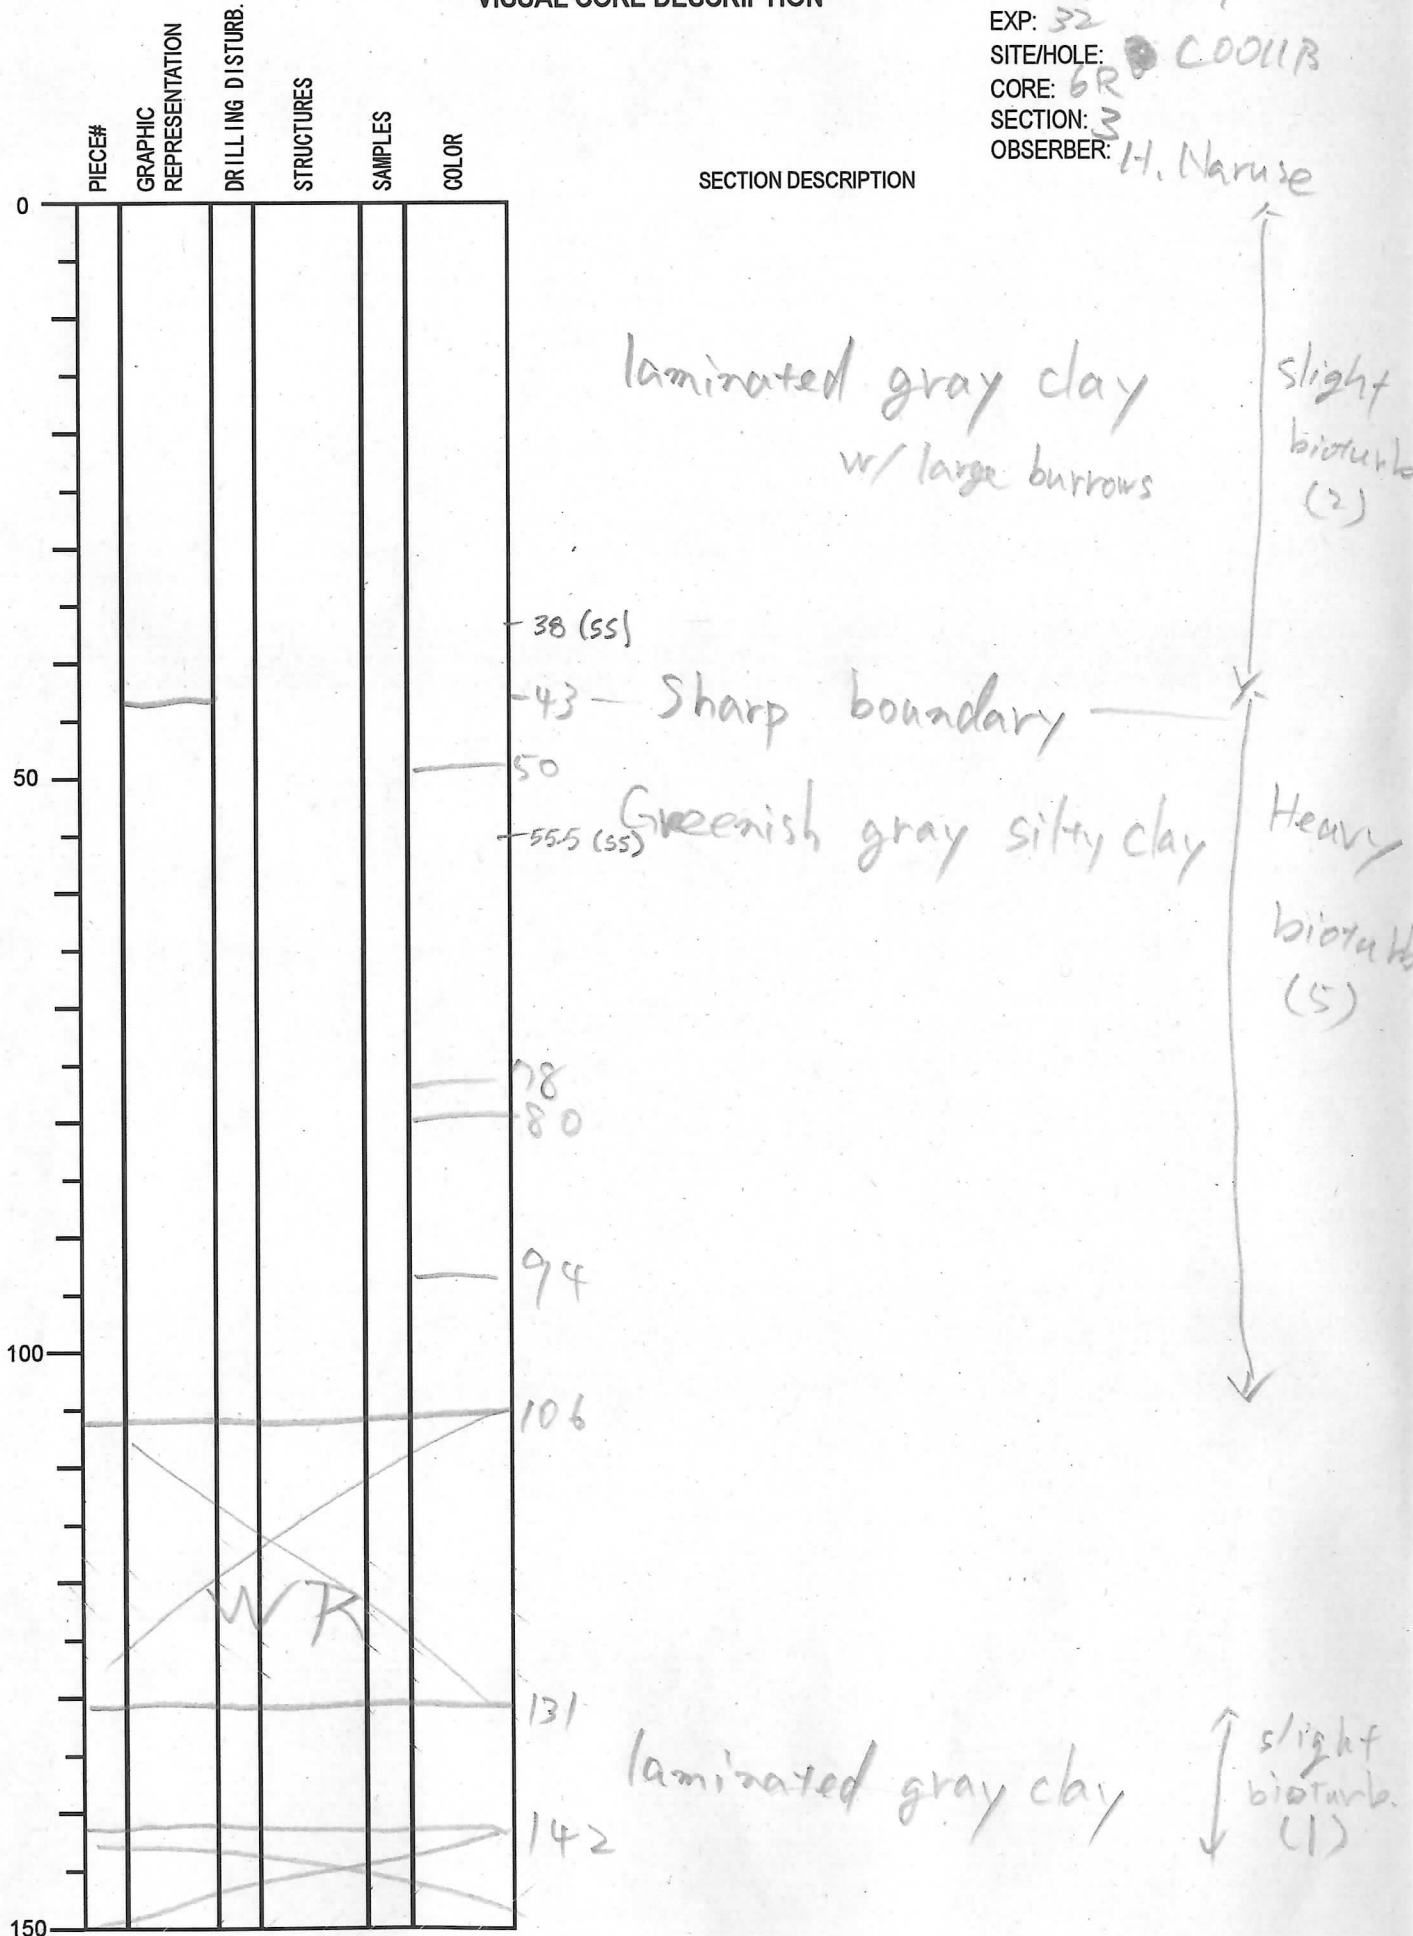 VISUAL CORE DESCRIPTION
EXP: 32
SITE/HOLE: C0011B
CORE: 6R
SECTION: 3
OBSERBER: H. Naruse
PIECE#
GRAPHIC
REPRESENTATION
DRILLING DISTURB.
STRUCTURES
SAMPLES
COLOR
SECTION DESCRIPTION
0
laminated gray clay
w/ large burrows
slight
bioturb
(2)
38 (SS)
43 — Sharp boundary
50
50
55.5 (SS)
Greenish gray silty clay
Heavy
bioturb
(5)
78
80
94
100
106
WR
131
laminated gray clay
slight
bioturb.
(1)
142
150